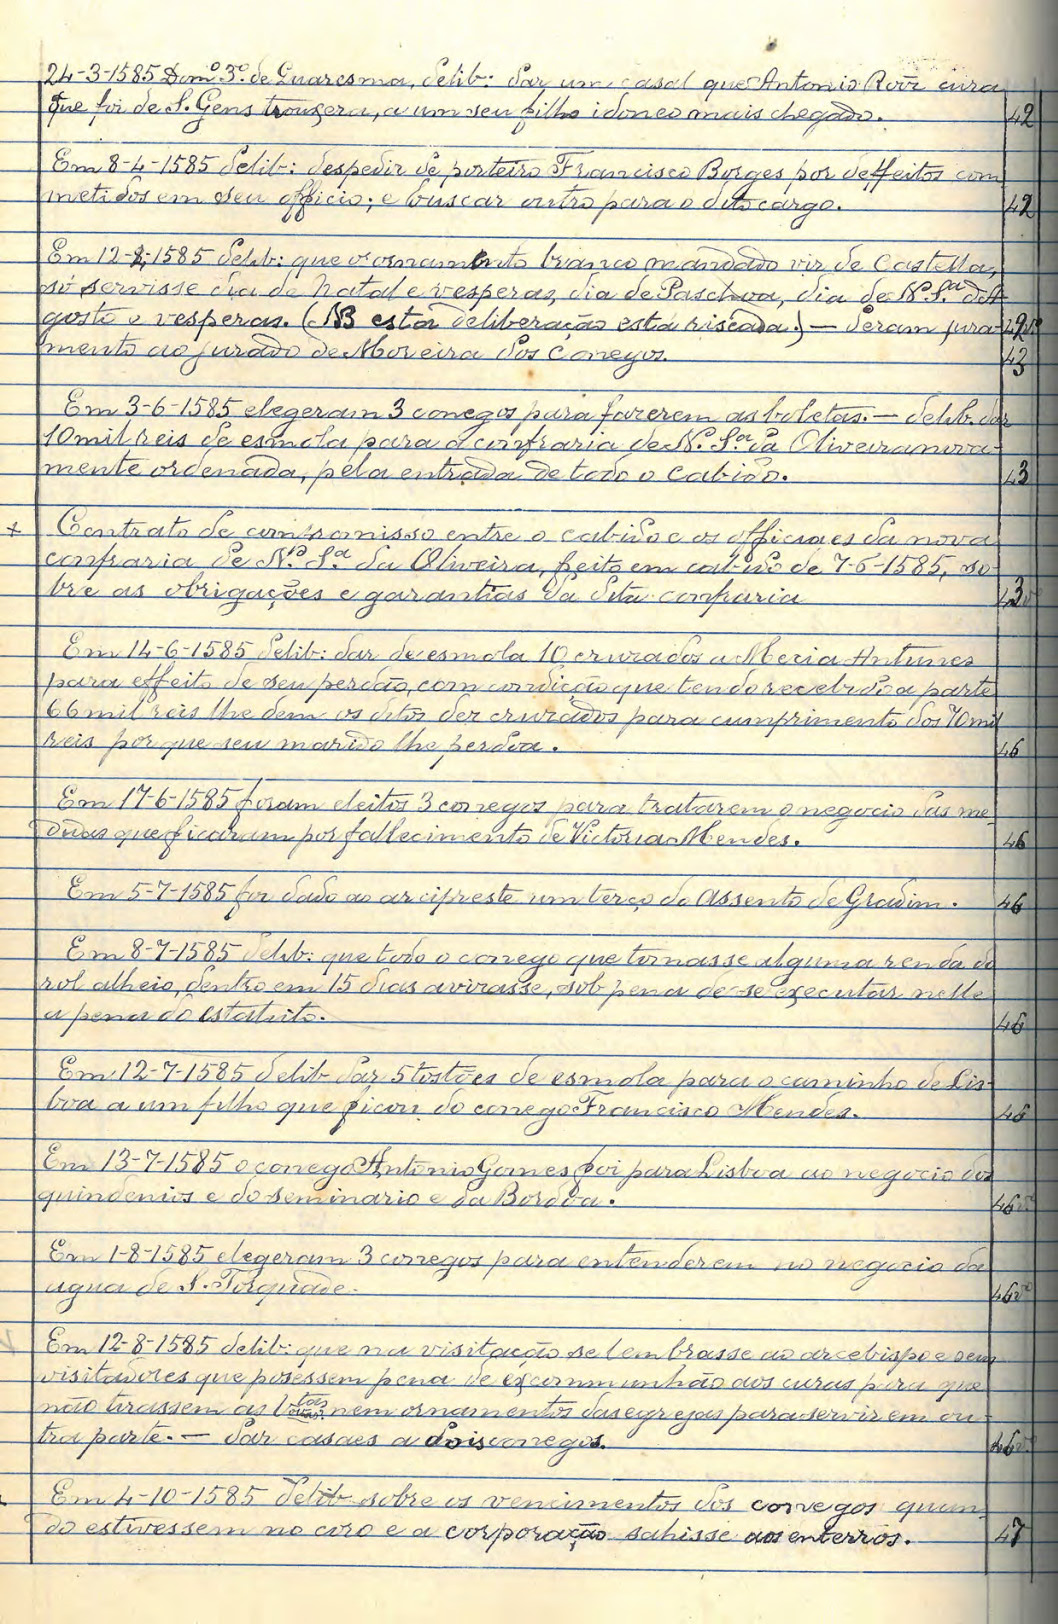 24-3-1585 Domº 3º de Quaresma, delib: dar um casal que Antonio Roiz cura
que foi de S. Gens trouxera, a um seu filho idoneo mais chegado. 42
Em 8-4-1585 delib: despedir de porteiro Francisco Borges por deffeitos com
metidos em seu officio; e buscar outro para o dito cargo. 42
Em 12- -1585 delib: que o ornamento branco mandado vir de Castella,
só servisse dia de Natal e vesperas, dia de Paschoa, dia de N. S.ª d'A
gosto e vesperas. (NB esta deliberação está riscada.) — Deram jura- 42vº
mento ao jurado de Moreira dos Conegos. 43
Em 3-6-1585 elegeram 3 conegos para fazerem as boletas. — delib. dar
10 mil reis de esmola para a confraria de N. S.ª da Oliveira nova-
mente ordenada, pela entrada de todo o Cabido. 43
+ Contrato de compromisso entre o cabido e os officiaes da nova
confraria de N. S.ª da Oliveira, feito em cabido de 7-6-1585, so-
bre as obrigações e garantias da dita confraria 43vº
Em 14-6-1585 delib: dar de esmola 10 cruzados a Mecia Antunes
para effeito de seu perdão, com condição que tendo recebido a parte
66 mil reis lhe dem os ditos dez cruzados para cumprimento dos 70 mil
reis por que seu marido lhe perdoa. 46
Em 17-6-1585 foram eleitos 3 conegos para tratarem o negocio das me-
didas que ficaram por fallecimento de Victoria Mendes. 46
Em 5-7-1585 foi dado ao arcipreste um terço do assento de Gradim. 46
Em 8-7-1585 delib: que todo o conego que tomasse alguma renda do
rol alheio, dentro em 15 dias avisasse, sob pena de se executar nelle
a pena do estatuto. 46
Em 12-7-1585 delib dar 5 tostões de esmola para o caminho de Lis-
boa a um filho que ficou do conego Francisco Mendes. 46
Em 13-7-1585 o conego Antonio Gomes foi para Lisboa ao negocio dos
quindenios e do seminario e da Bordoa. 46vº
Em 1-8-1585 elegeram 3 conegos para entenderem no negocio da
agua de S. Torquade. 46vº
Em 12-8-1585 delib: que na visitação se lembrasse ao arcebispo e seus
visitadores que posessem pena de excommunhão aos curas para que
não tirassem as nem ornamentos das egrejas para servir em ou-
tra parte. — Dar casaes a dois conegos. 46vº
Em 4-10-1585 delib sobre os vencimentos dos conegos quan-
do estivessem no coro e a corporação sahisse aos enterros. 47